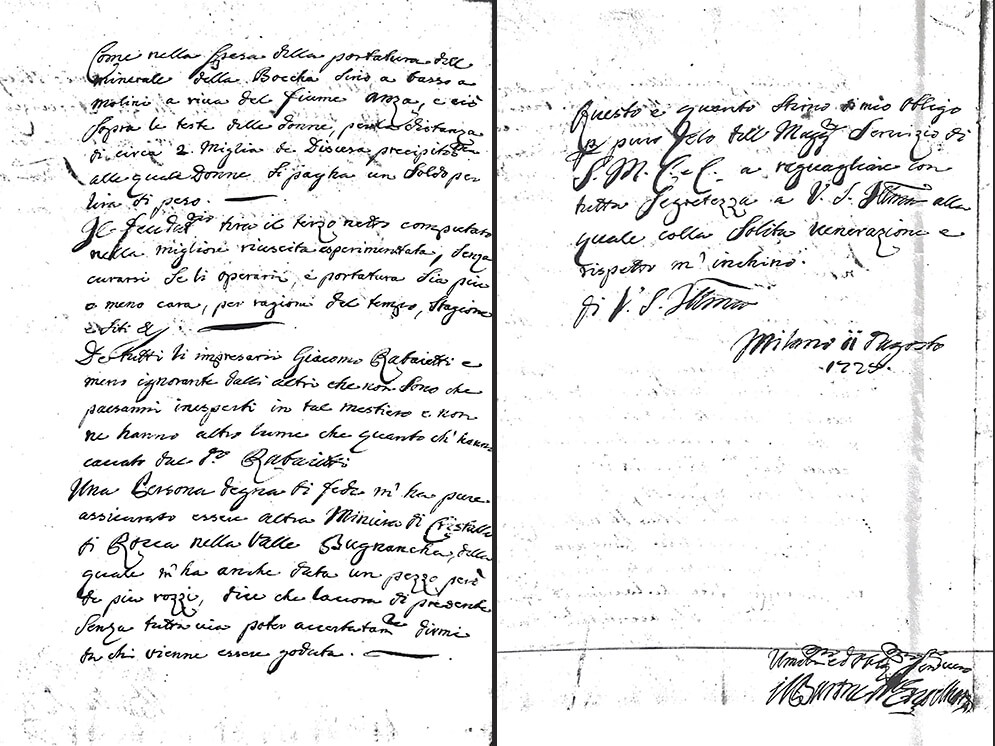 Come nella spesa della portatura dell
minerale della Boccha sino a basso a
molini a riva del fiume Anza, e ciò
sopra le teste delle donne, per la distanza
di circa 2 Miglia di Discesa precipitosa
alle quale Donne si pagha un soldo per
lira di peso.
Il feudat.rio tira il terzo netto computato
nella migliore riuscita esperimentata, senza
curarsi se li operarii, e portatura sia piu
o meno cara, per ragioni del tempo, stagione
e siti &
De tutti li impresarii Giacomo Rabaietti e
meno ignorante dalli altri che non sono che
paesanni inesperti in tal mestiero e non
ne hanno altro lume che quanto ch' hanno
cavato dal d.o Rabaietti
Una Persona degna di fede m' ha pure
assicurato essere altra Miniera di Cristallo
di Rocca nella Valle Bugnancha, della
quale m' ha anche data un pezzo però
de piu rozzi, dice che lavora di presente
senza tutta via poter accertatam.te dirmi
da chi vienne essere goduta.
Questo è quanto stimo mio obligo
puro Zelo dell' Mag. Servizio di
S. M. C. e C. a raguagliare con
tutta segretezza a V. S. Ill.ma alla
quale colla solita venerazione e
rispetto m' inchino.
di V. S. Ill.ma
Milano 11 d'agosto
Servitore